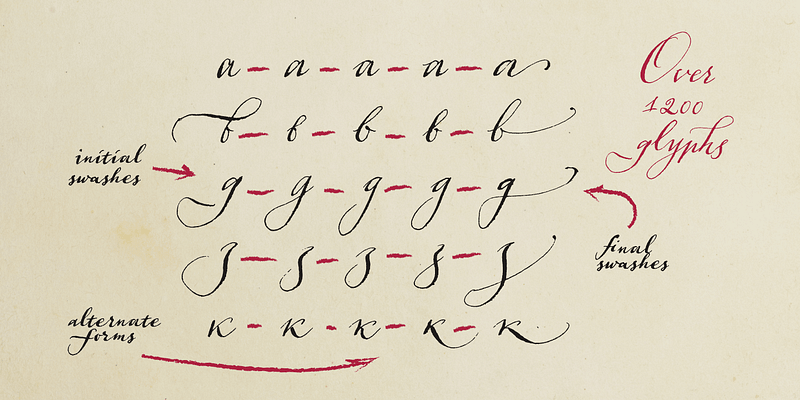 a – a – a – a – a
b – b – b – b – b
g – g – g – g – g
к – к – к – к – к
Over
1200
glyphs
initial
swashes
final
swashes
alternate
forms